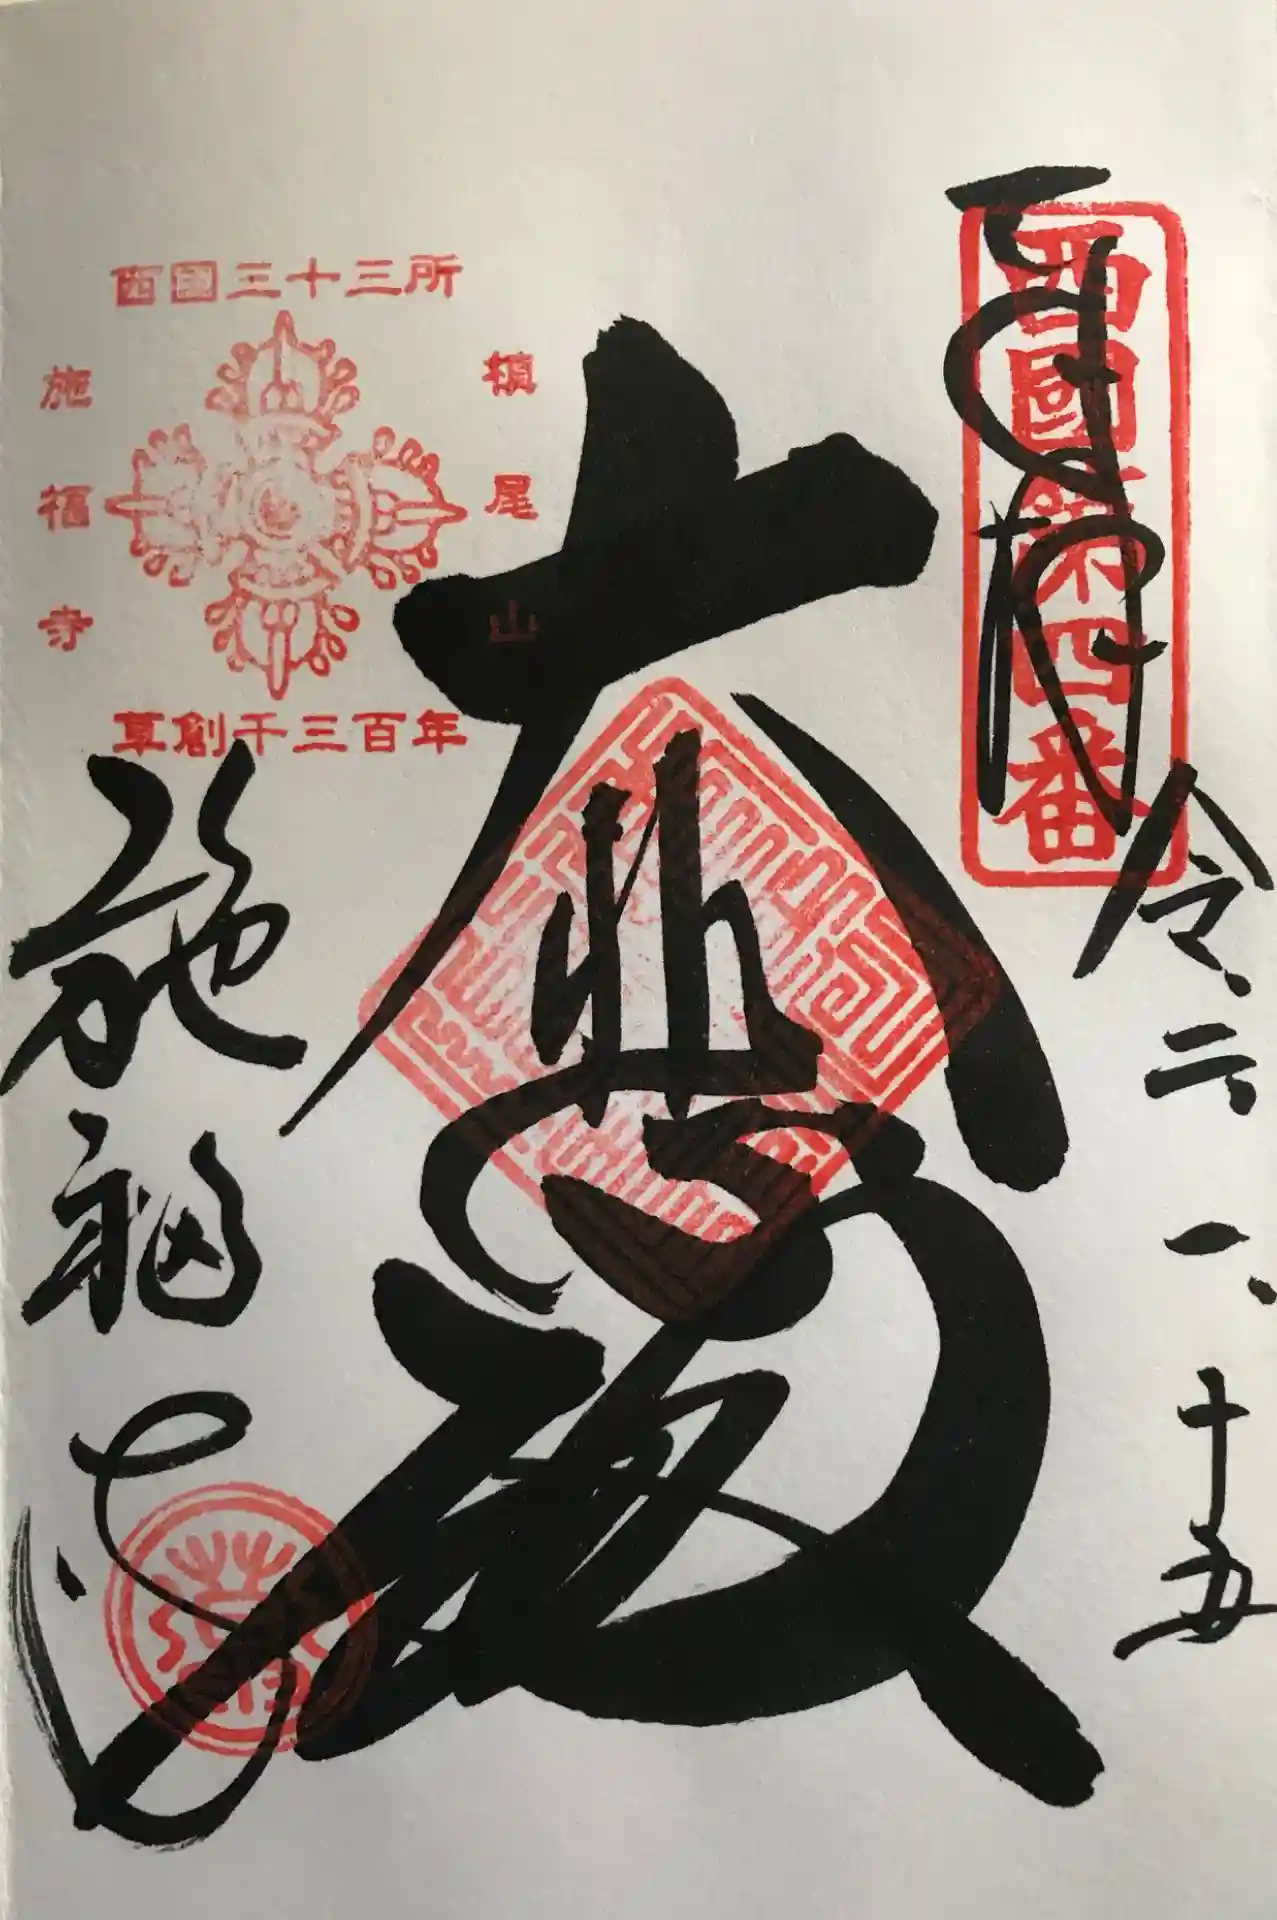 奉拝
西國第四番
令二、一、十五
大悲殿
西國三十三所
槙尾山
施福寺
草創千三百年
施福寺